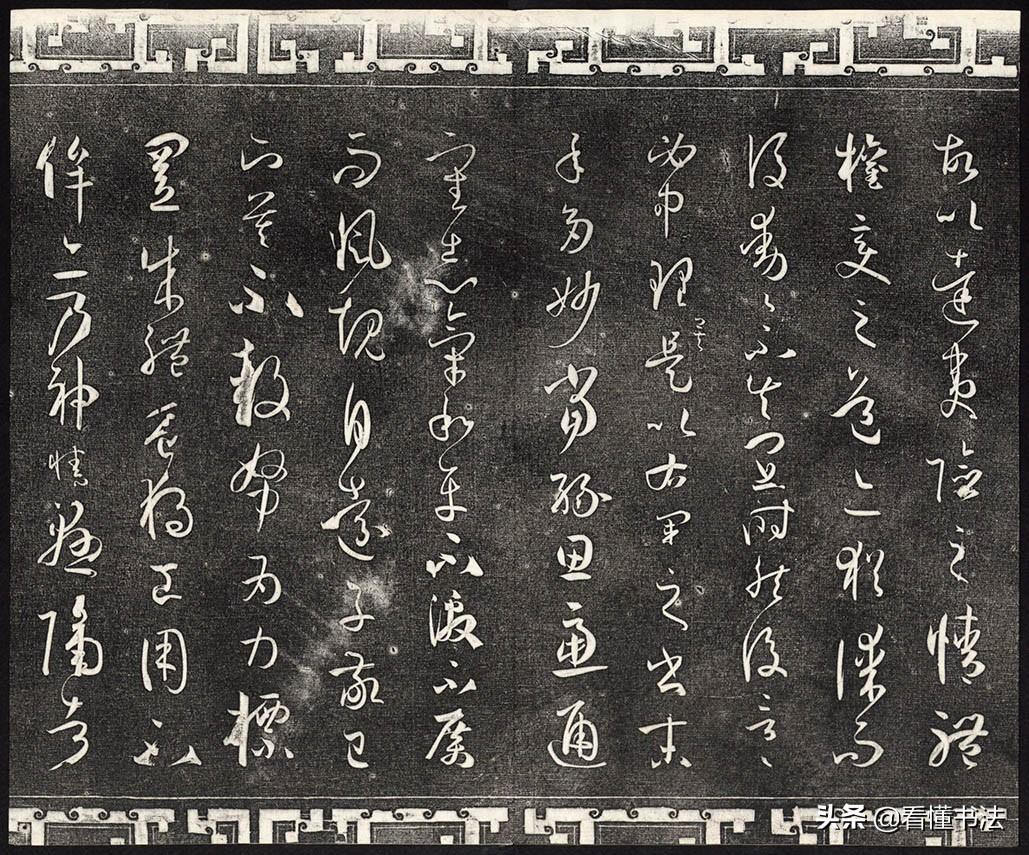 故以達夷險之情體
權變之道亦猶謀而
後動動不失宜時然後言言
必中理矣是以右軍之書末
年多妙當緣思慮通
審志氣和平不激不厲
而風規自遠子敬已
下莫不鼓努為力標
置成體豈獨工用不
侔亦乃神情懸隔者
头条 @看懂书法